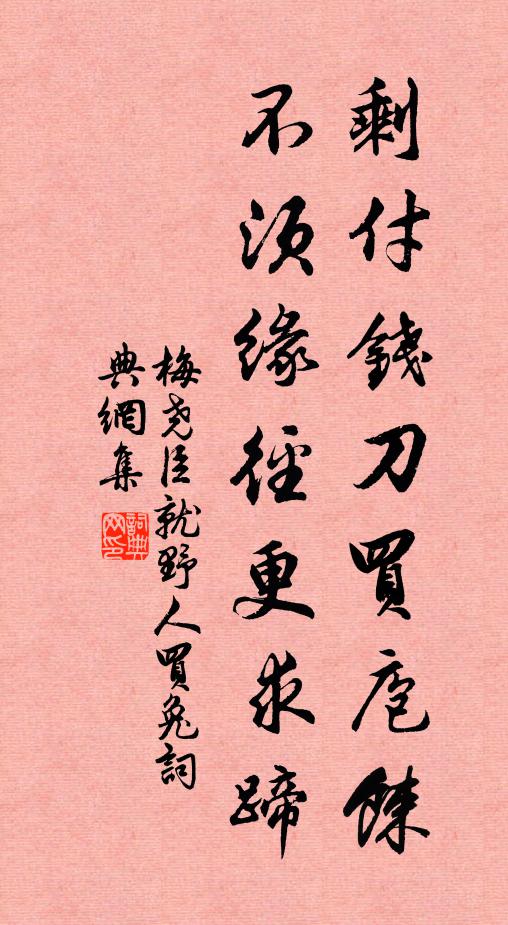 剩付錢刀買庖餗
不須緣徑更求蹄
梅尭臣就野人買兔詞
典網集
詞典網印